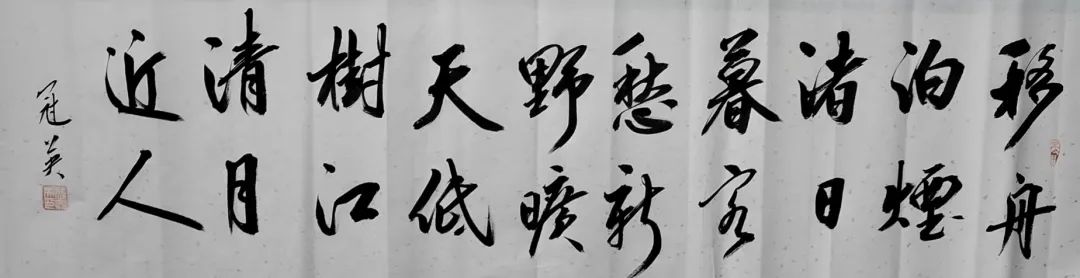 移舟
泊煙
渚日
暮客
愁新
野曠
天低
樹江
清月
近人
冠英